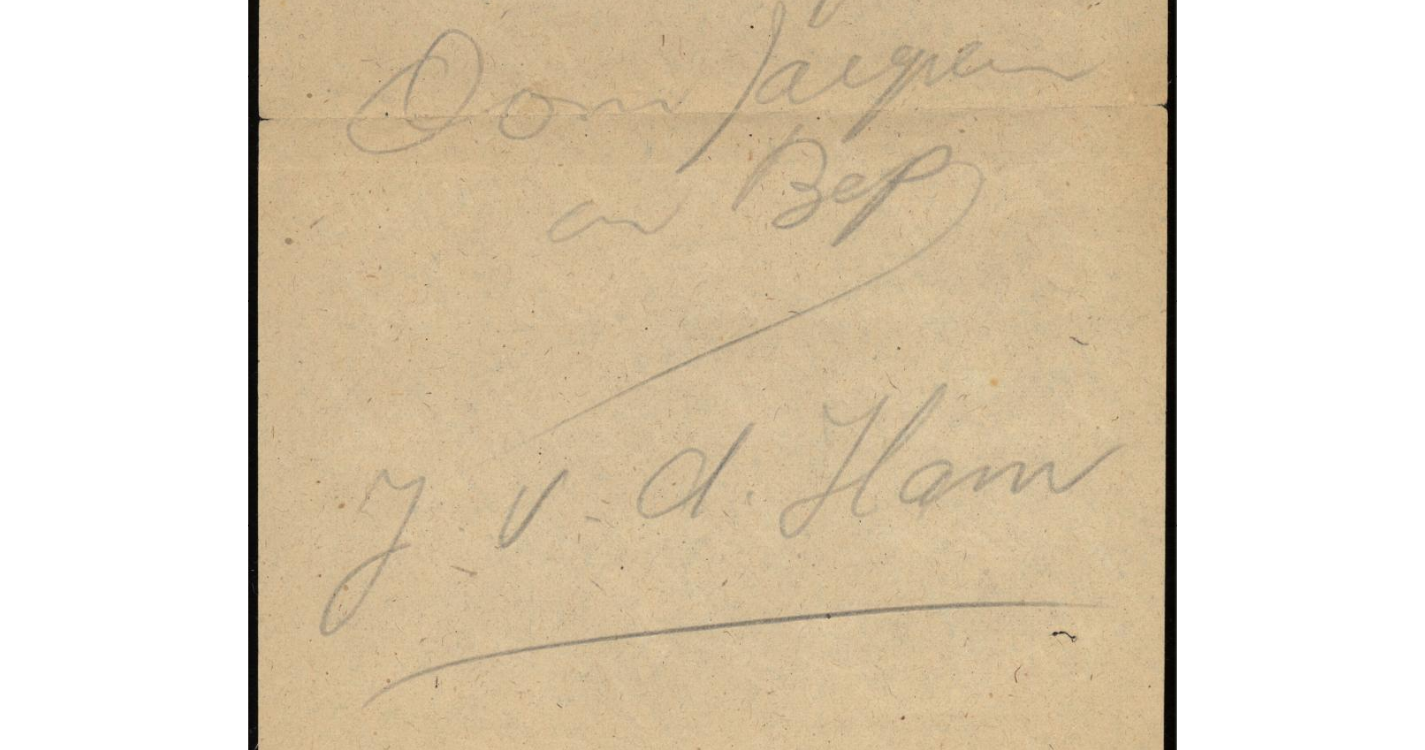 Oom
en Bep
J. v. d. Ham